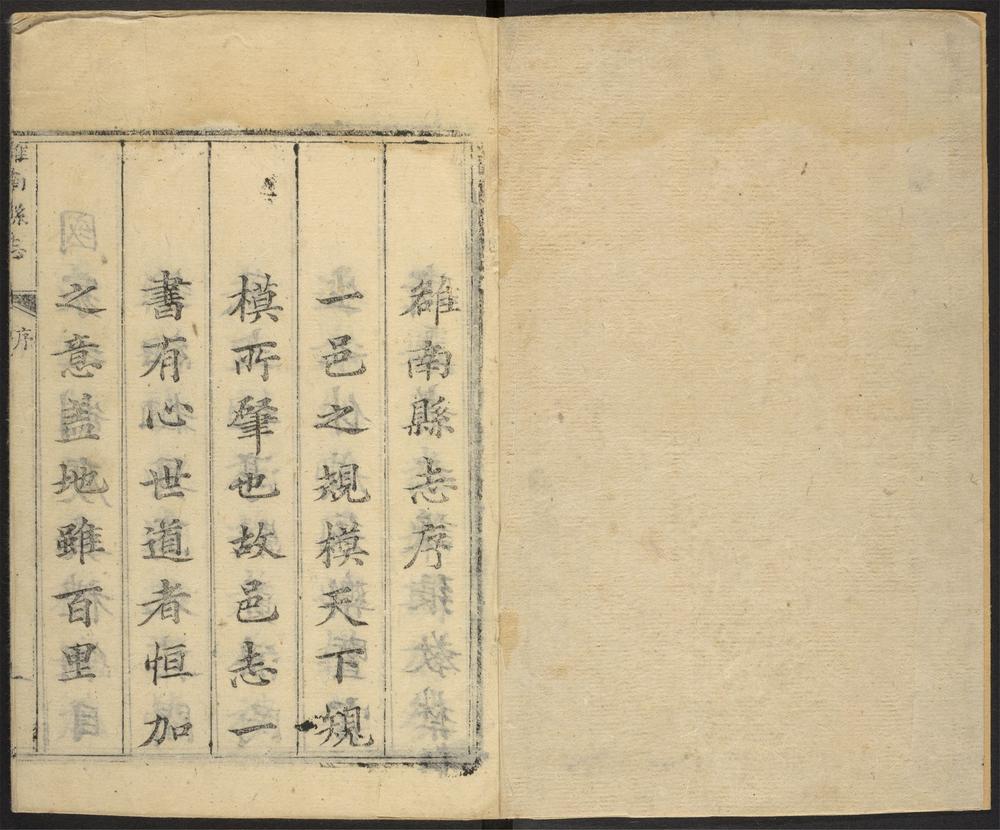 雒南縣志序
一邑之規模天下規
模所肇也故邑志一
書有心世道者恒加
之意蓋地雖百里
雒南縣志
序
一